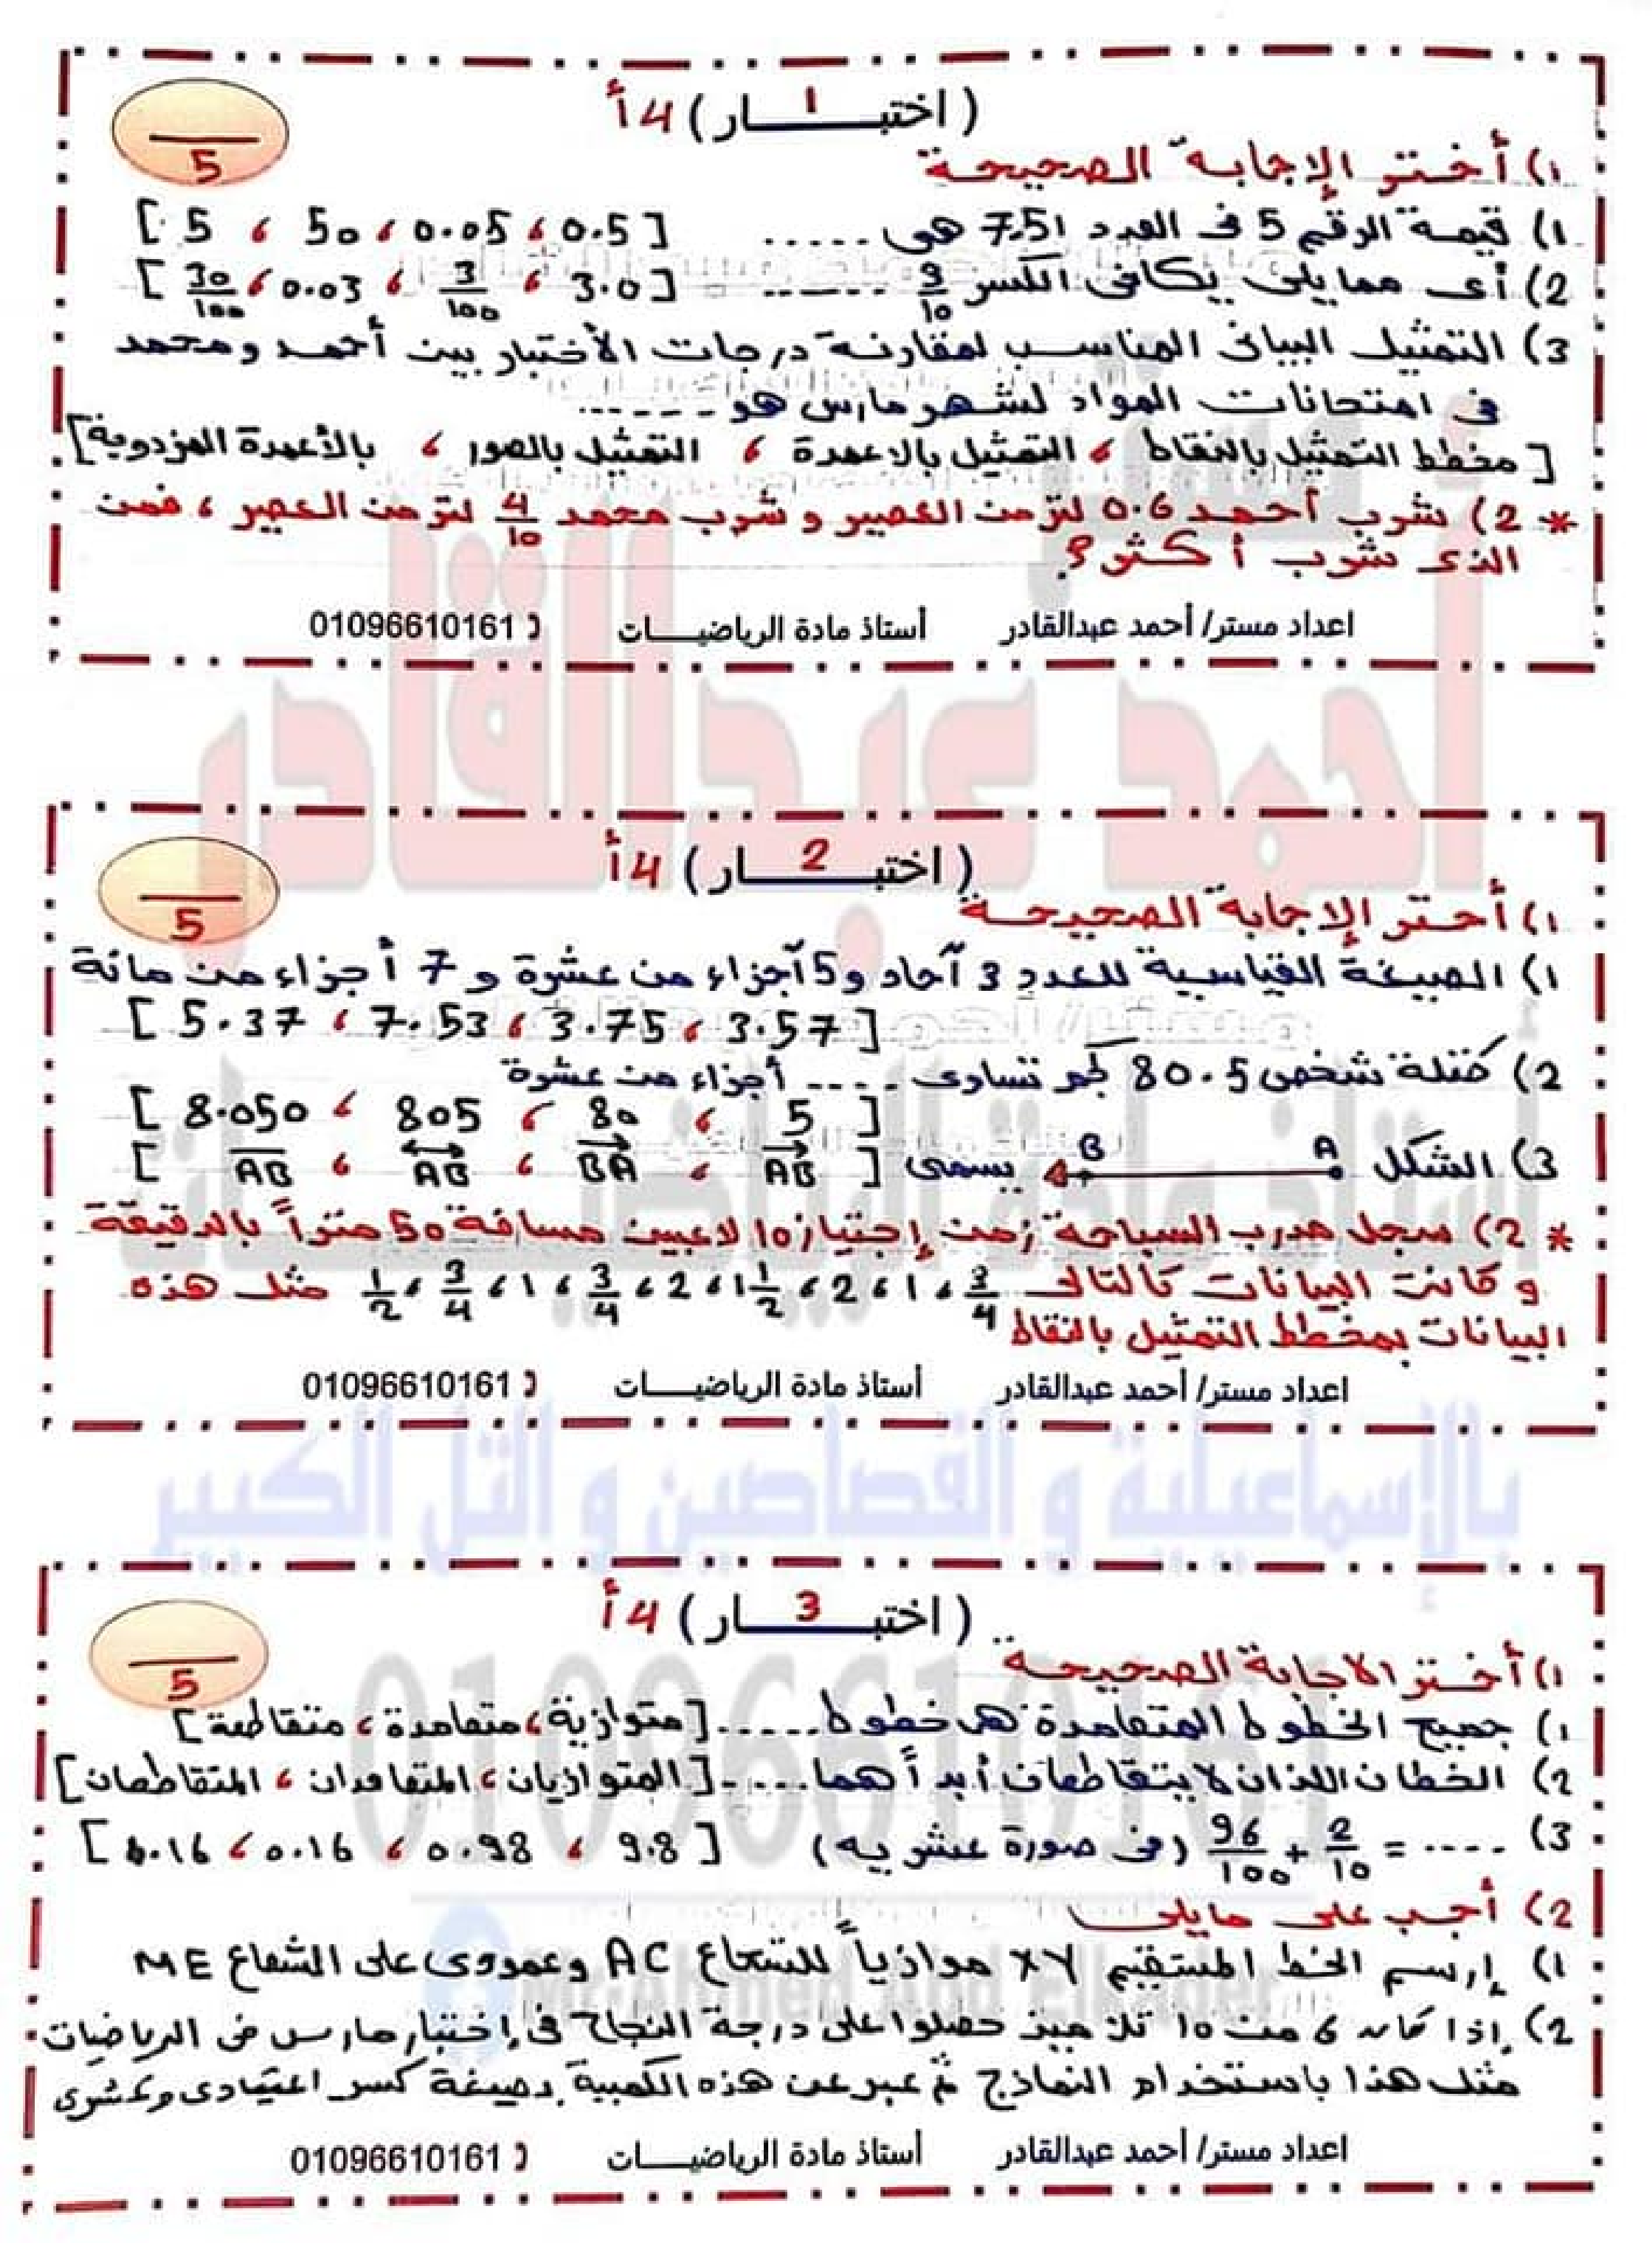 ( اختبـــار ) 1 4 أ
5
1) أختر الإجابة الصحيحة
1) قيمة الرقم 5 فى العدد 7.51 هى ..... [ 0.5 ، 0.05 ، 50 ، 5 ]
2) أى مما يلى يكافئ الكسر 3/10 ..... [ 3.0 ، 3/100 ، 0.03 ، 30/100 ]
3) التمثيل البيانى المناسب لمقارنة درجات الأختبار بين أحمد ومحمد
فى امتحانات المواد لشهر مارس هو .....
[ مخطط التمثيل بالنقاط ، التمثيل بالاعمدة ، التمثيل بالصور ، بالأعمدة المزدوجة ]
* 2) شرب أحمد 0.6 لتر من العصير و شرب محمد 4/10 لتر من العصير ، فمن
الذى شرب أكثر؟
اعداد مستر/ أحمد عبدالقادر أستاذ مادة الرياضيـــات 01096610161
أحمد عبدالقادر
( اختبـــار ) 2 4 أ
5
1) أختر الإجابة الصحيحة
1) الصيغة القياسية للعدد 3 آحاد و 5 أجزاء من عشرة و 7 أجزاء من مائة
[ 3.57 ، 3.75 ، 7.53 ، 5.37 ]
2) كتلة شخص 80.5 كجم تساوى .... أجزاء من عشرة
[ 5 ، 80 ، 805 ، 8.050 ]
3) الشكل A B يسمى [ AB ، BA ، AB ، AB ]
* 2) سجل مدرب السباحة زمن إجتياز 10 لاعبين مسافة 50 متراً بالدقيقة
و كانت البيانات كالتالى 3/4 ، 1 ، 2 ، 1 1/2 ، 2 ، 3/4 ، 1 ، 3/4 ، 1/2 مثل هذه
البيانات بمخطط التمثيل بالنقاط
اعداد مستر/ أحمد عبدالقادر أستاذ مادة الرياضيـــات 01096610161
بالإسماعيلية و القصاصين و التل الكبير
( اختبـــار ) 3 4 أ
5
1) أختر الاجابة الصحيحة
1) جميع الخطوط المتعامدة هى خطوط ..... [ متوازية ، متعامدة ، متقاطعة ]
2) الخطان اللذان لا يتقاطعان أبدأ هما .... [ المتوازيان ، المتعامدان ، المتقاطعان ]
3) .... = 2/10 + 96/100 (فى صورة عشريه) [ 9.8 ، 0.98 ، 0.16 ، 1.16 ]
2) أجب على مايلى
1) إرسم الخط المستقيم XY موازياً للشعاع AC وعمودى على الشعاع ME
2) إذا كان 6 من 10 تلاميذ حصلوا على درجة النجاح فى إختبار مارس فى الرياضيات
مثل هذا باستخدام النماذج ثم عبر عن هذه الكمية بصيغة كسر اعتيادى وعشرى
اعداد مستر/ أحمد عبدالقادر أستاذ مادة الرياضيـــات 01096610161